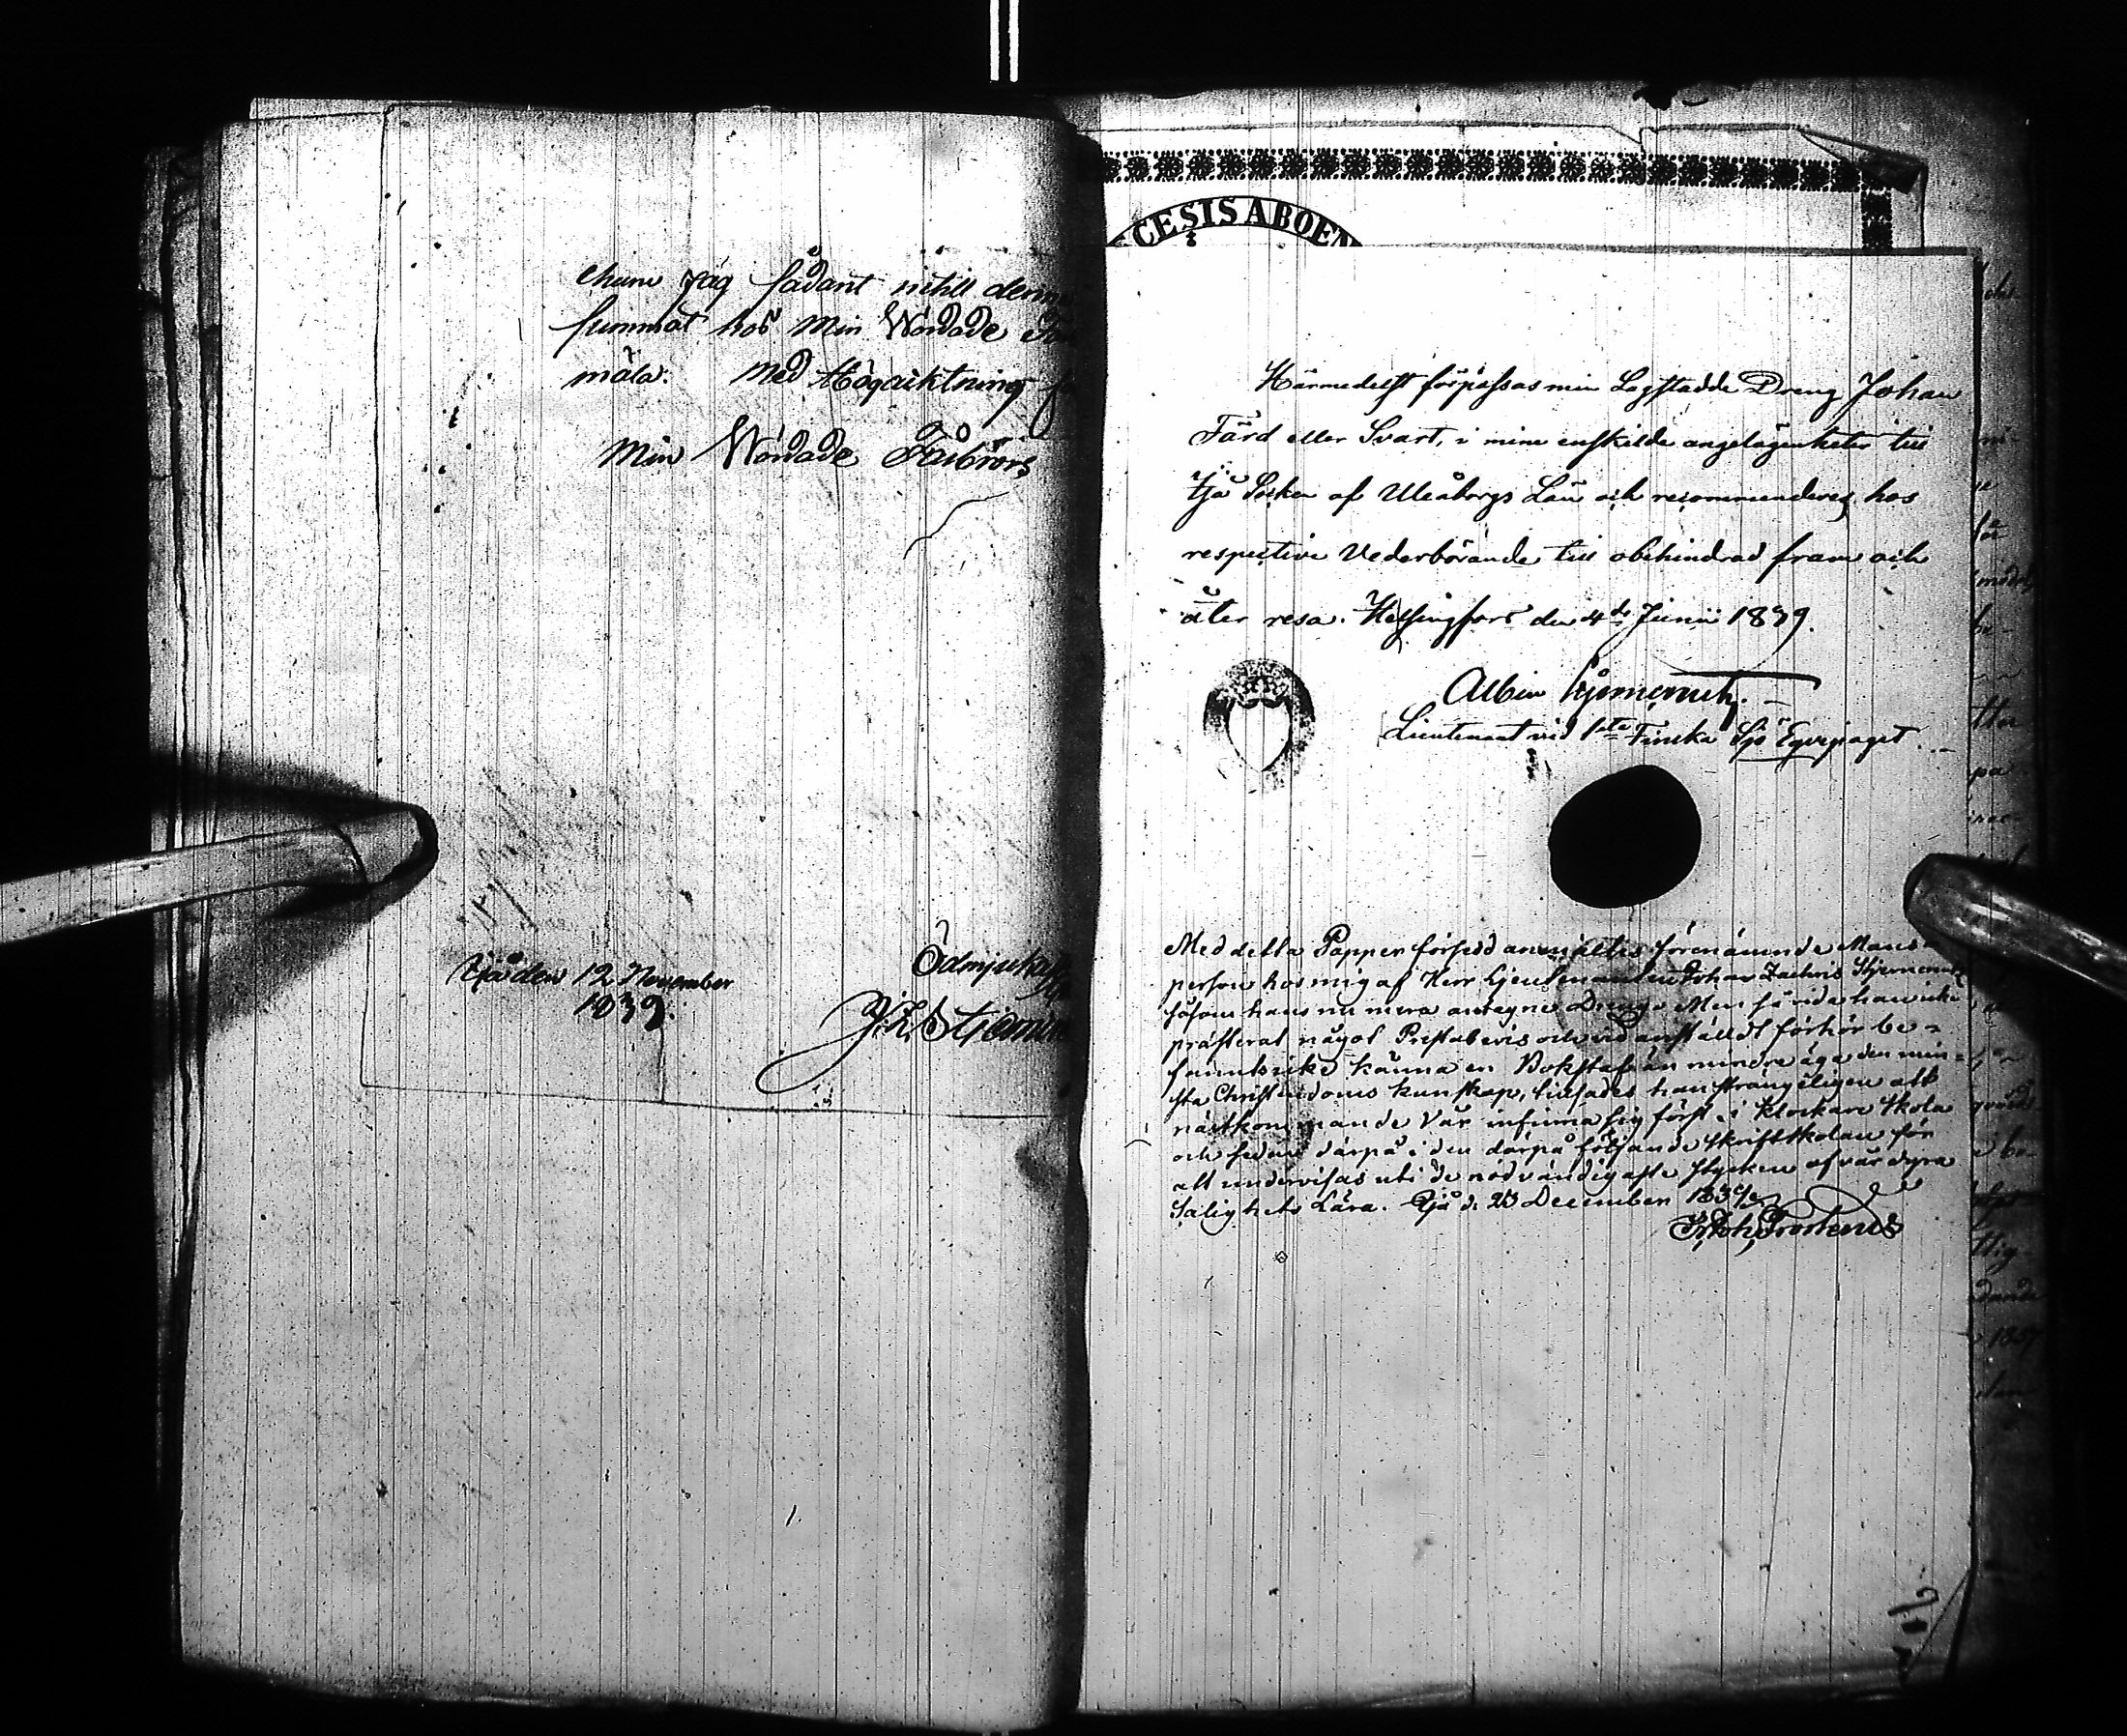 churu jag sådant intill denna
summat hos Min Wördade
mäla. Med Högacktning
Min Wördade Farbrors
Ijå den 12 November
1839.
Ödmjuka
J. Z. Stjern
CESIS ABOEN
Härmedelst förpassas min Lagstadde Dreng Johan
Färd eller Svart, i mine enskilde angelägenheter till
Ijå Socken af Uleåborgs Län och recommenderes hos
respective Vederbörande till obehindrad fram och
åter resa. Helsingfors den 4de Junii 1839.
Albin Stjernereutz.
Lieutenant vid 1sta Finska Sjö Eqvipaget.
Med detta Papper försedd anmältes förenämnde Mans-
person hos mig af Herr Johan Zachris
såsom hans nu mera antagne Dreng. Men så vida han icke
prästerat något Prestabevis och vid anställdt förhör be-
fanns icke känna en Bokstaf än mindre äga den min-
sta Christendoms kunskap, tillsades han strängeligen att
nästkommande Vår infinna sig först i Klockare Skola
och sedan därpå i den därpå följande Skriftskolan för
att undervisas uti de nödvändigaste stycken af vår dyra
Salighets Lära. Ijå d. 23 December 1839.
Frosterus